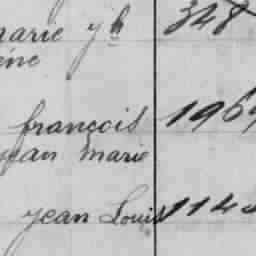 marie jh 348
ène
françois 196
jean marie
jean Louis 114